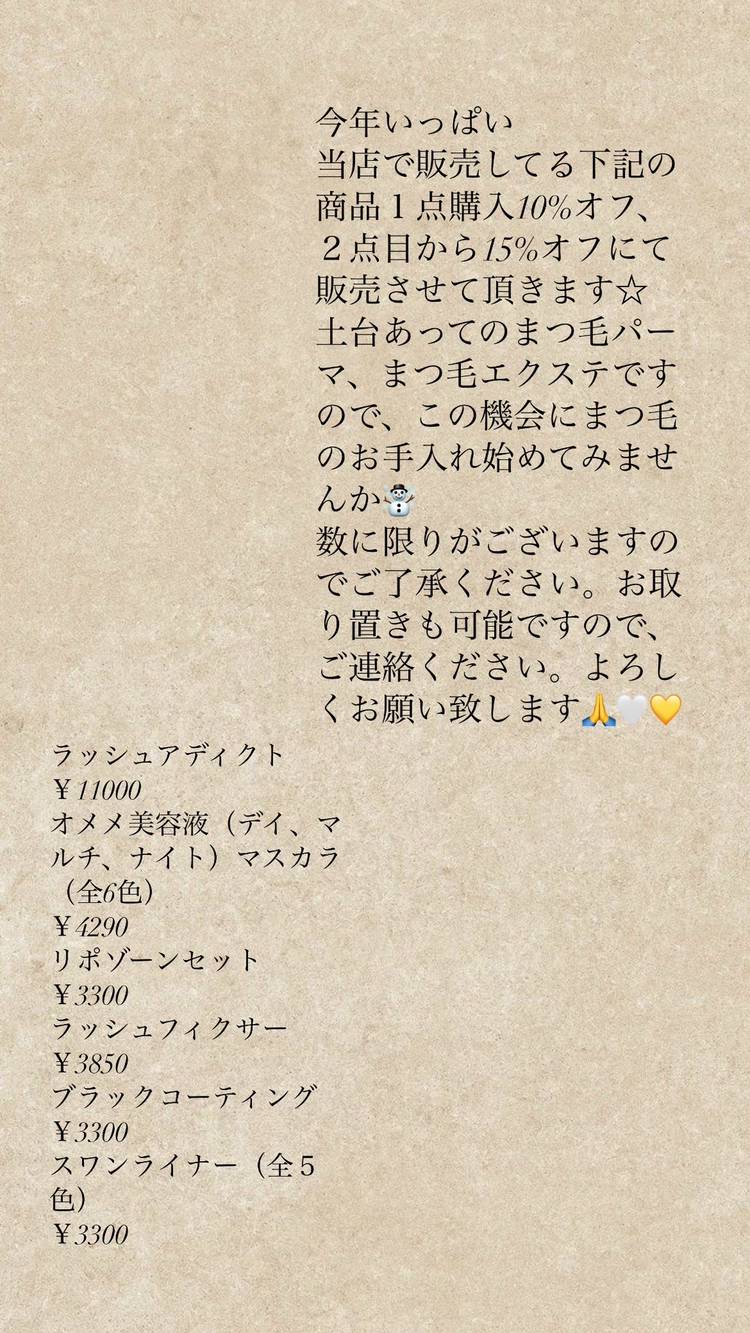 今年いっぱい
当店で販売してる下記の
商品１点購入10%オフ、
２点目から15%オフにて
販売させて頂きます☆
土台あってのまつ毛パー
マ、まつ毛エクステです
ので、この機会にまつ毛
のお手入れ始めてみませ
んか⛄
数に限りがございますの
でご了承ください。お取
り置きも可能ですので、
ご連絡ください。よろし
くお願い致します🙏🤍💛
ラッシュアディクト
￥11000
オメメ美容液（デイ、マ
ルチ、ナイト）マスカラ
（全6色）
￥4290
リポゾーンセット
￥3300
ラッシュフィクサー
￥3850
ブラックコーティング
￥3300
スワンライナー（全５
色）
￥3300